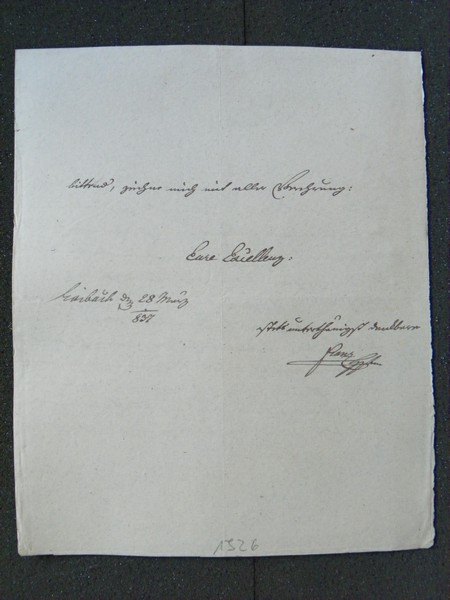 bittend, zeichne mich mit aller Verehrung:
Eure Excellenz,
Laibach den 28 März
837
stets unterthänigst dankbare
Franz
1526